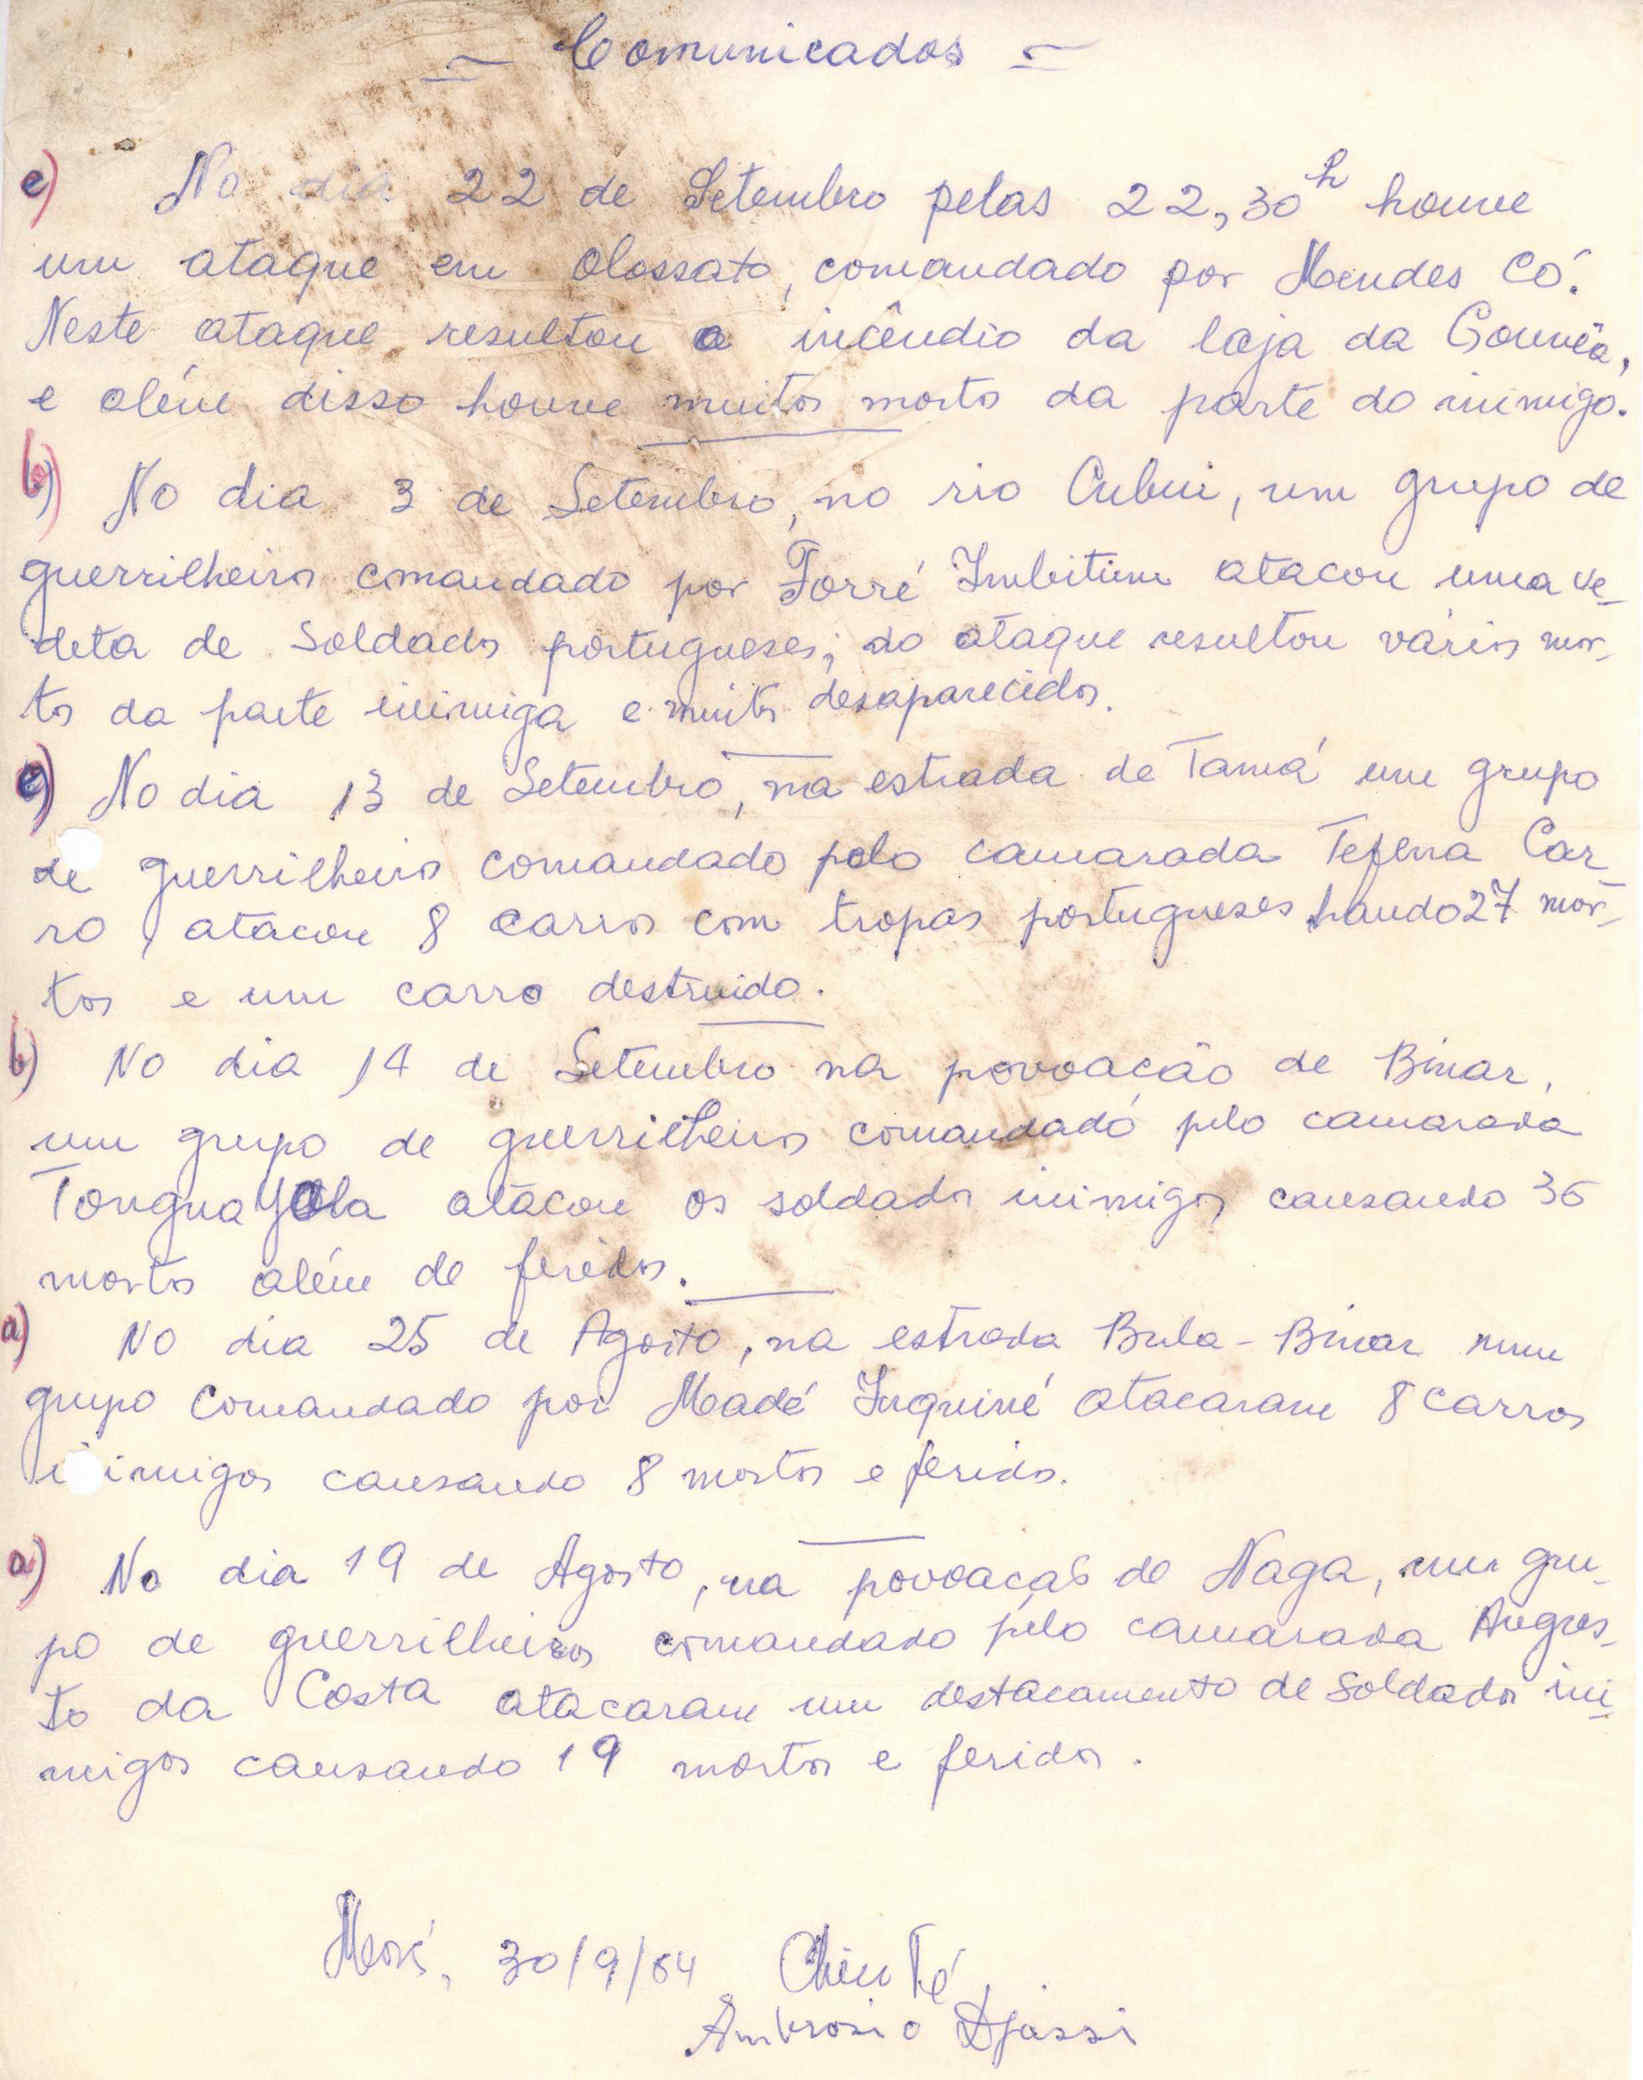 - Comunicados -
c) No dia 22 de Setembro pelas 22,30h houve
um ataque em Olossato, comandado por Mendes Có.
Neste ataque resultou o incêndio da loja da Gouvêa,
e além disso houve muitos mortos da parte do inimigo.
b) No dia 3 de Setembro, no rio Cubui, um grupo de
guerrilheiros comandado por Forré Imbitim atacou uma ve-
deta de soldados portugueses; do ataque resultou vários mor-
tos da parte inimiga e muitos desaparecidos.
c) No dia 13 de Setembro, na estrada de Tamá um grupo
de guerrilheiros comandado pelo camarada Tefena Car
ro, atacou 8 carros com tropas portugueses havendo 27 mor-
tos e um carro destruido.
b) No dia 14 de Setembro na povoacão de Binar,
um grupo de guerrilheiros comandado pelo camarada
Tongna Yala atacou os soldados inimigos causando 36
mortos além de feridos.
a) No dia 25 de Agosto, na estrada Bula - Binar num
grupo comandado por Madé Inquiné atacaram 8 carros
inimigos causando 8 mortos e feridos.
a) No dia 19 de Agosto, na povoacaõ de Naga, um gru-
po de guerrilheiros comandado pelo camarada Augus-
to da Costa atacaram um destacamento de soldados ini-
migos causando 19 mortos e feridos.
Morés, 30/9/64 Chico Té
Ambrosio Djassi